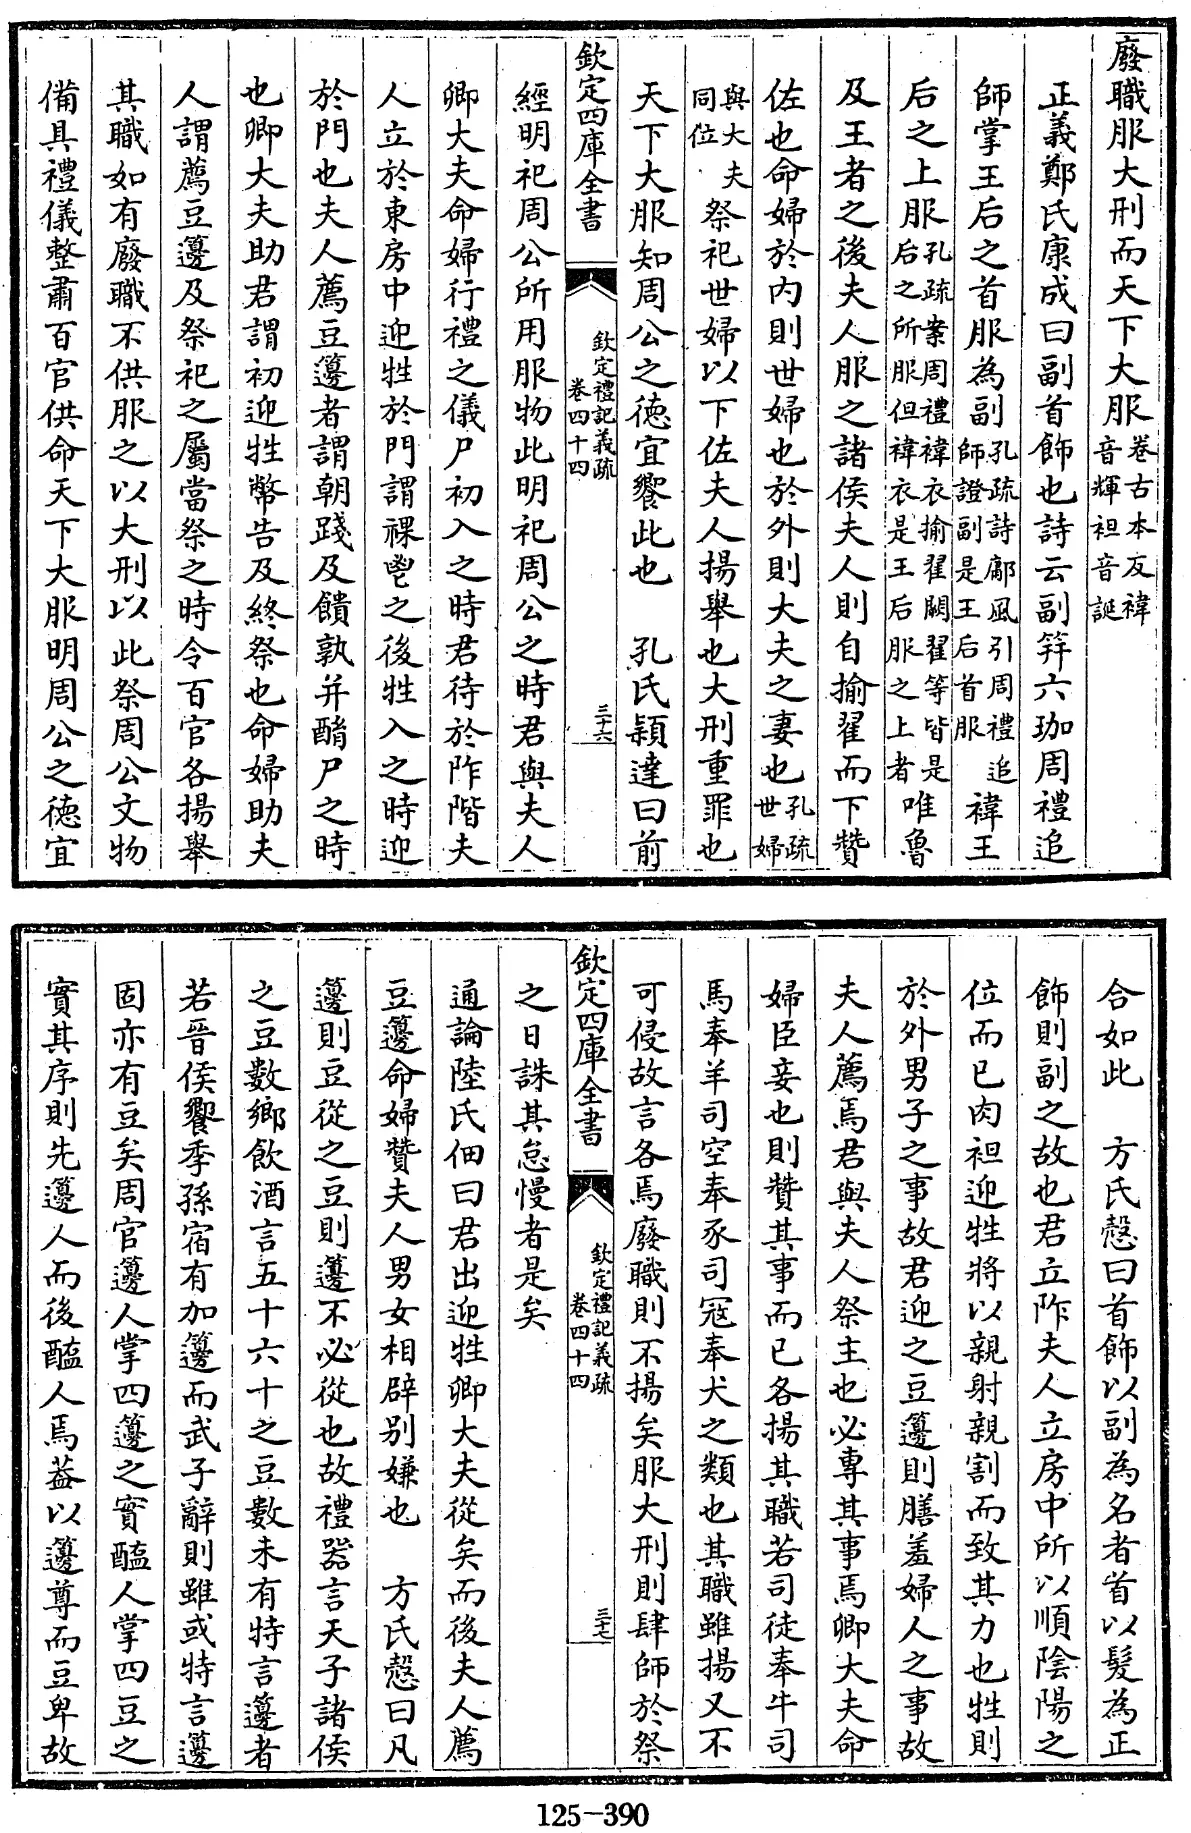 廢職服大刑而天下大服卷古本反褘
音輝袒音誕
正義鄭氏康成曰副首飾也詩云副筓六珈周禮追
師掌王后之首服為副孔疏詩鄘風引周禮追
師證副是王后首服褘王
后之上服孔疏案周禮褘衣揄翟闕翟等皆是
后之所服但褘衣是王后服之上者唯魯
及王者之後夫人服之諸侯夫人則自揄翟而下贊
佐也命婦於内則世婦也於外則大夫之妻也孔疏
世婦
與大夫
同位祭祀世婦以下佐夫人揚舉也大刑重罪也
天下大服知周公之德宜饗此也 孔氏穎達曰前
欽定四庫全書
欽定禮記義疏
卷四十四
三十六
經明祀周公所用服物此明祀周公之時君與夫人
卿大夫命婦行禮之儀尸初入之時君待於阼階夫
人立於東房中迎牲於門謂祼鬯之後牲入之時迎
於門也夫人薦豆籩者謂朝踐及饋孰并酳尸之時
也卿大夫助君謂初迎牲幣告及終祭也命婦助夫
人謂薦豆籩及祭祀之屬當祭之時令百官各揚舉
其職如有廢職不供服之以大刑以此祭周公文物
備具禮儀整肅百官供命天下大服明周公之德宜
合如此 方氏慤曰首飾以副為名者首以髮為正
飾則副之故也君立阼夫人立房中所以順陰陽之
位而已肉袒迎牲將以親射親割而致其力也牲則
於外男子之事故君迎之豆籩則膳羞婦人之事故
夫人薦焉君與夫人祭主也必專其事焉卿大夫命
婦臣妾也則贊其事而已各揚其職若司徒奉牛司
馬奉羊司空奉豕司冦奉犬之類也其職雖揚又不
可侵故言各焉廢職則不揚矣服大刑則肆師於祭
欽定四庫全書
欽定禮記義疏
卷四十四
三十七
之日誅其怠慢者是矣
通論陸氏佃曰君出迎牲卿大夫從矣而後夫人薦
豆籩命婦贊夫人男女相辟別嫌也 方氏慤曰凡
籩則豆從之豆則籩不必從也故禮器言天子諸侯
之豆數鄉飲酒言五十六十之豆數未有特言籩者
若晉侯饗季孫宿有加籩而武子辭則雖或特言籩
固亦有豆矣周官籩人掌四籩之實醢人掌四豆之
實其序則先籩人而後醢人焉葢以籩尊而豆卑故
125-390